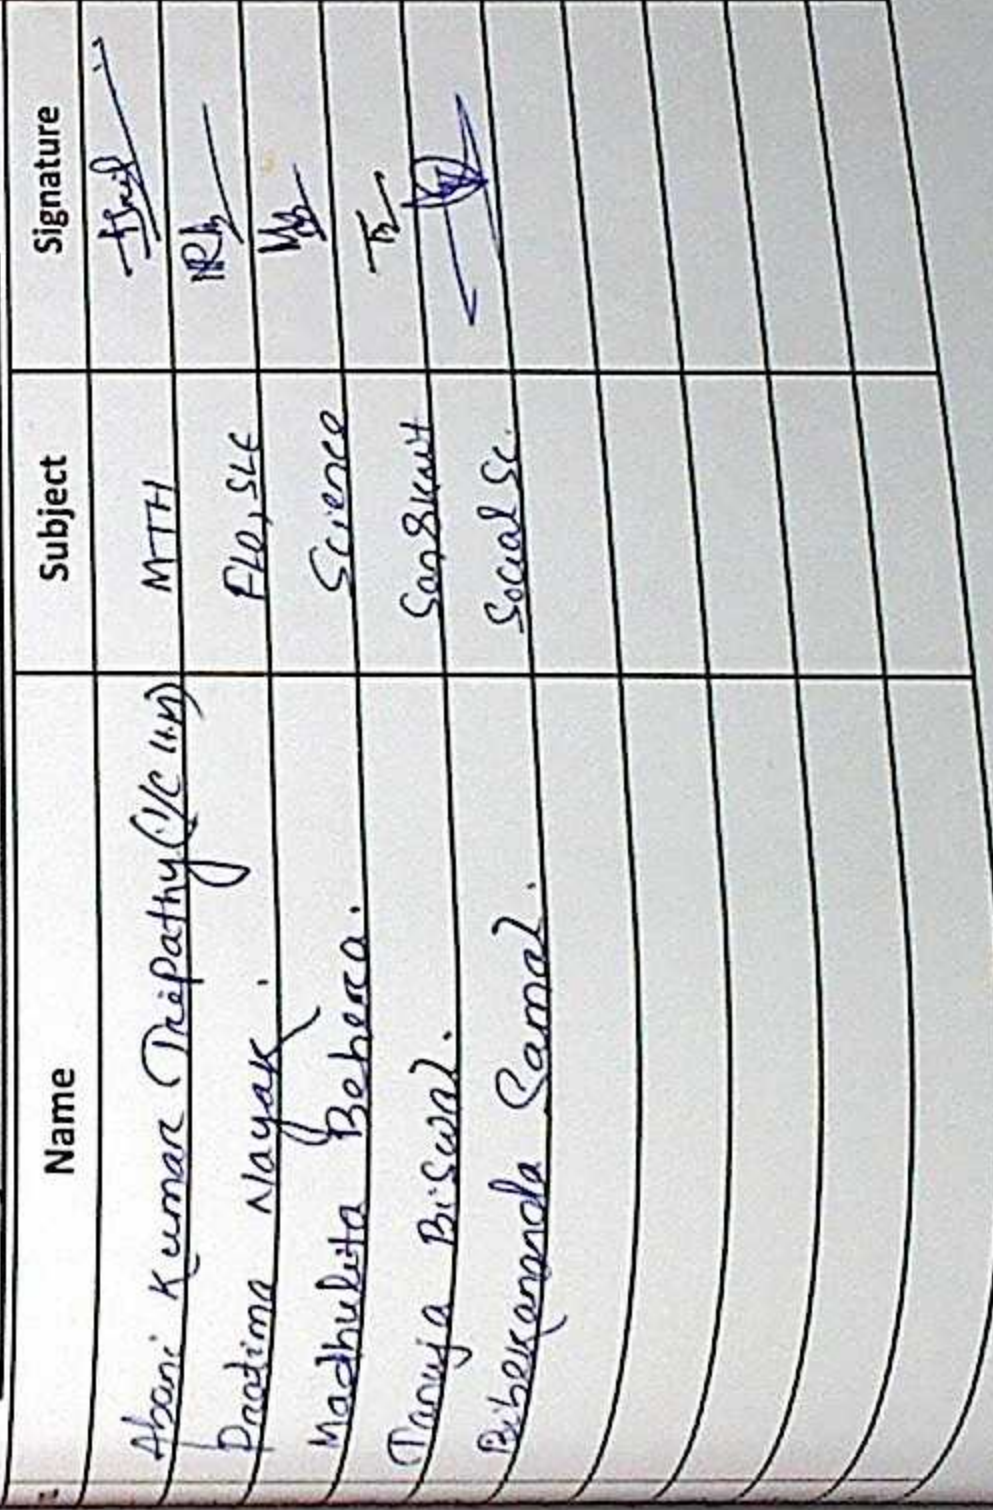 Name Subject Signature
Abani Kumar Tripathy (I/C HM) MTH
Pratima Nayak. FLO, SLE
Madhulita Behera. Science
Tanuja Biswal. Sanskrit
Bibekananda Samal. Social Sc.